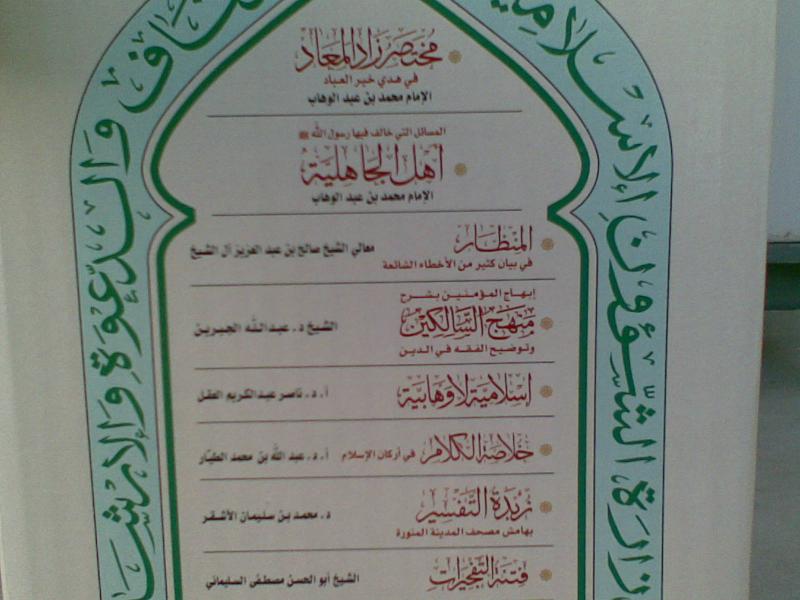 وزارة الشؤون الإسلامية
والدعوة والإرشا
مختصر زاد المعاد
في هدي خير العباد
الإمام محمد بن عبد الوهاب
المسائل التي خالف فيها رسول الله ﷺ
أهل الجاهلية
الإمام محمد بن عبد الوهاب
المنظار
في بيان كثير من الأخطاء الشائعة
معالي الشيخ صالح بن عبد العزيز آل الشيخ
إبهاج المؤمنين بشرح
منهج السالكين
وتوضيح الفقه في الدين
الشيخ د. عبد الله الجبرين
إسلامية لا وهابية
أ. د. ناصر عبد الكريم العقل
خلاصة الكلام في أركان الإسلام
أ. د. عبد الله بن محمد الطيار
زبدة التفسير
بهامش مصحف المدينة المنورة
د. محمد بن سليمان الأشقر
فتنة التفجيرات
الشيخ أبو الحسن مصطفى السليماني